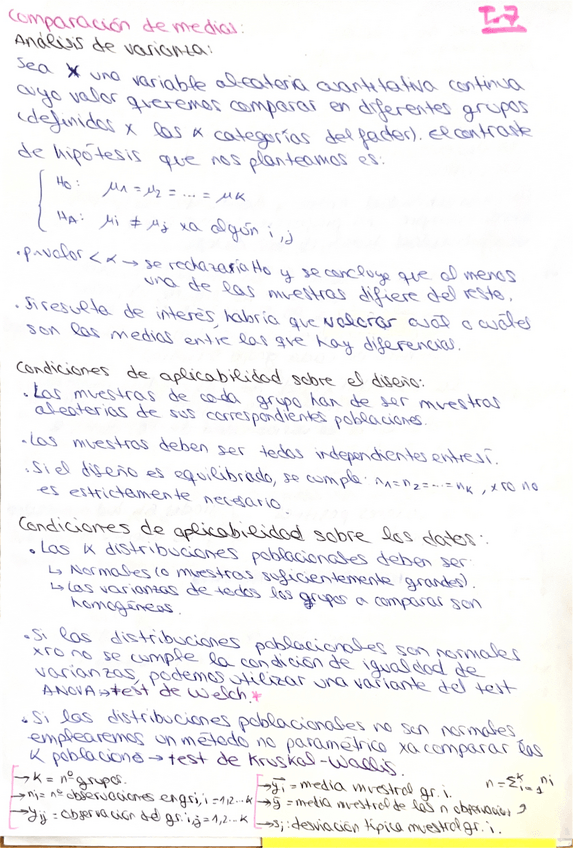 comparación de medias:
I-7
Análisis de varianza:
Sea X una variable aleatoria cuantitativa continua
cuyo valor queremos comparar en diferentes grupos
(definidos x las k categorías del factor). El contraste
de hipótesis que nos planteamos es:
H0: μ1 = μ2 = ... = μk
HA: μi ≠ μj xa algún i,j
· p-valor < α → se rechazaría H0 y se concluye que al menos
una de las muestras difiere del resto.
· Si resulta de interés, habría que valorar cuál o cuáles
son las medias entre las que hay diferencias.
Condiciones de aplicabilidad sobre el diseño:
· Las muestras de cada grupo han de ser muestras
aleatorias de sus correspondientes poblaciones.
· Las muestras deben ser todas independientes entre sí.
· Si el diseño es equilibrado, se cumple: n1=n2=...=nk, xro no
es estrictamente necesario.
Condiciones de aplicabilidad sobre los datos:
· Las k distribuciones poblacionales deben ser:
↳ Normales (o muestras suficientemente grandes).
↳ Las varianzas de todos los grupos a comparar son
homogéneas.
· Si las distribuciones poblacionales son normales
xro no se cumple la condición de igualdad de
varianzas, podemos utilizar una variante del test
ANOVA → test de Welch.*
· Si las distribuciones poblacionales no son normales
emplearemos un método no paramétrico xa comparar las
k poblaciones → test de Kruskal-Wallis.
→ k = nº grupos.
→ ni = nº observaciones en gr i, i = 1,2...k
→ yij = observación del gr. i, j = 1,2...k
→ ȳi = media muestral gr. i.
n = Σᵏi=1 ni
→ ȳ = media muestral de las n observaciones
→ si: desviación típica muestral gr. i.